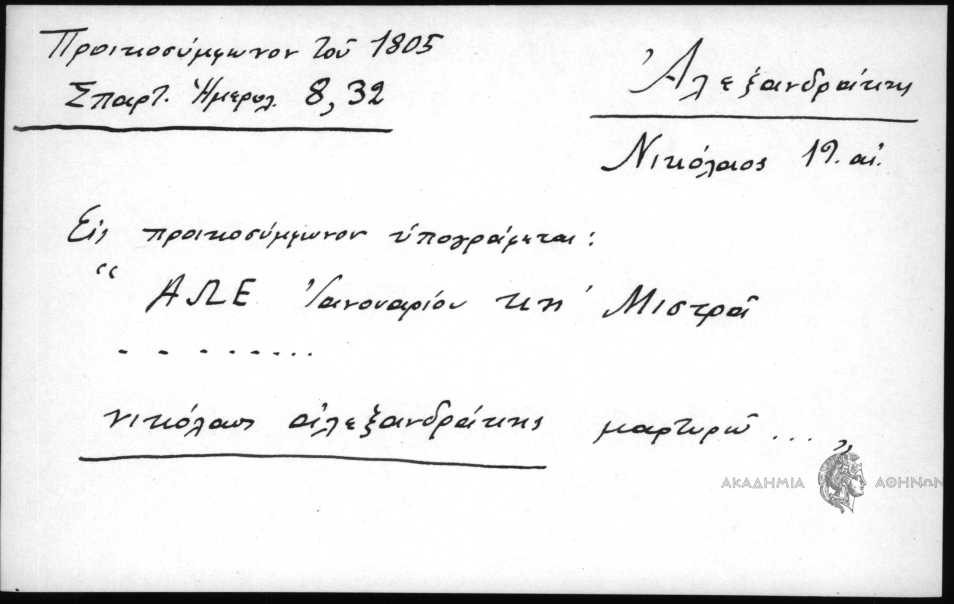 Προικοσύμφωνον τοῦ 1805
Σπαρτ. Ἡμερολ. 8, 32
Ἀλεξανδράκης
Νικόλαος 19. αἰ.
Εἰς προικοσύμφωνον ὑπογράφεται:
“ ΑΩΕ Ἰαννουαρίου κη΄ Μιστρᾶ
. . . . . . . . .
νικόλαος ἀλεξανδράκης μαρτυρῶ ... „
ΑΚΑΔΗΜΙΑ ΑΘΗΝΩΝ